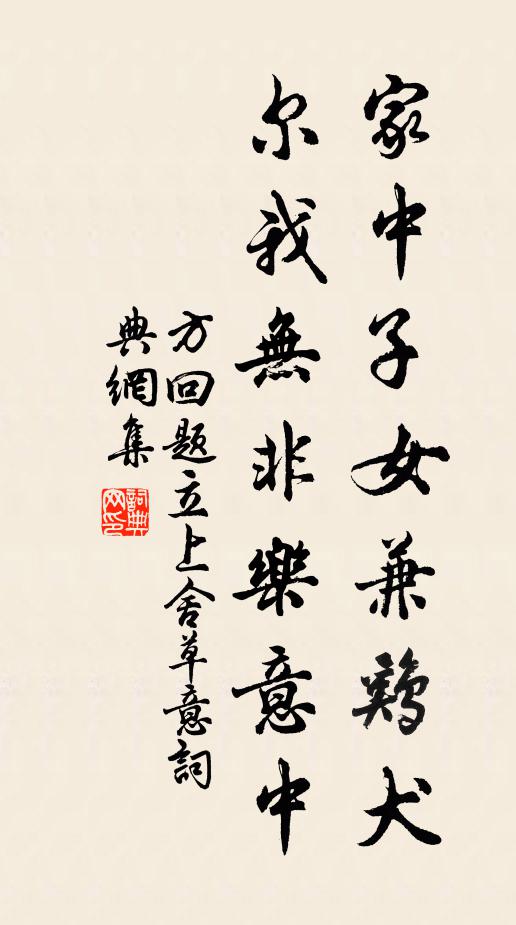 家中子女兼鷄犬
尔我無非樂意中
方回题立上舍草意詞
典網集
詞典
网印